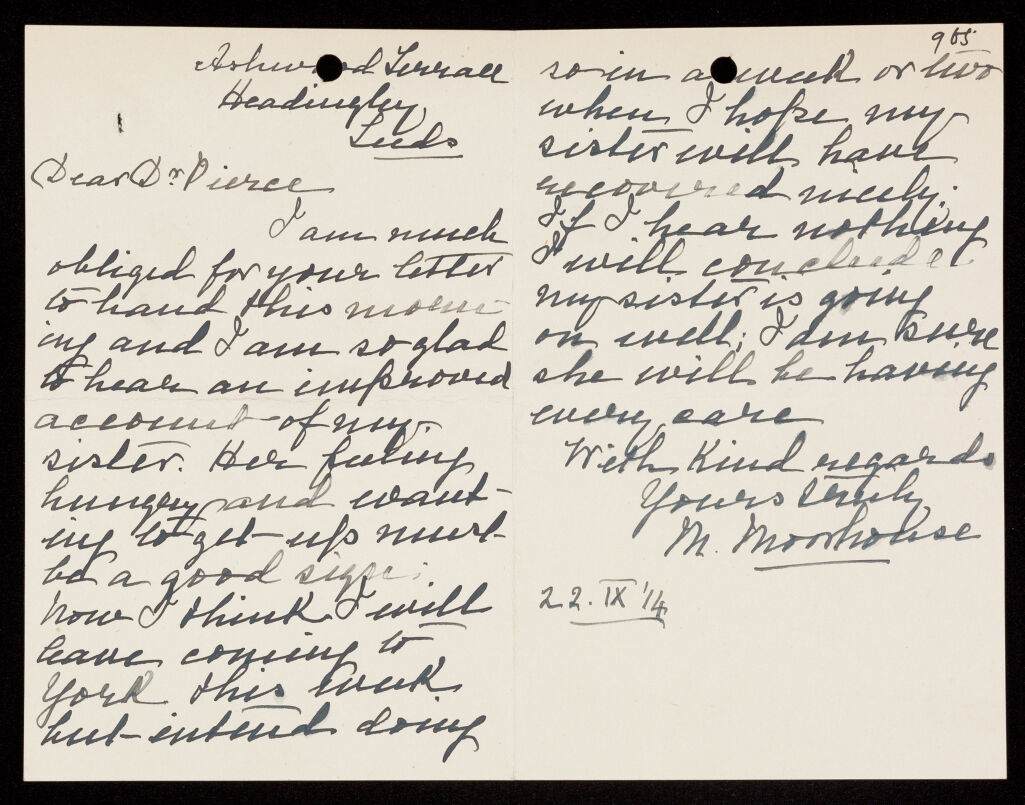 Ashwood Terrace
Headingley
Leeds
Dear Dr Pierce
I am much
obliged for your letter
to hand this morn
ing and I am so glad
to hear an improved
account of my
sister. Her feeling
hungry and want-
ing to get up must
be a good sign.
Now I think I will
leave coming to
York this week
but intend doing
905
so in a week or two
when I hope my
sister will have
recovered nicely.
If I hear nothing
I will conclude
my sister is going
on well; I am sure
she will be having
every care
With Kind regards
Yours truly
M. Moorhouse
22. IX '14